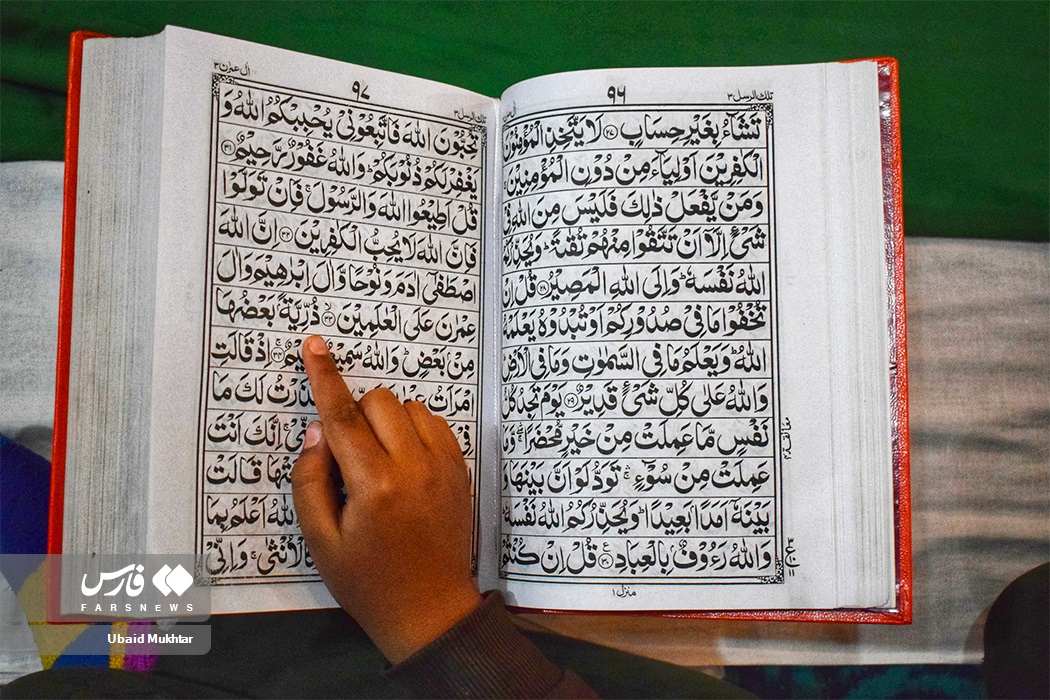 تلك الرسل ٣
٩٦
تَشَآءُ بِغَيْرِ حِسَابٍ ﴿٢٧﴾ لَا يَتَّخِذِ الْمُؤْمِنُوْنَ
الْكٰفِرِيْنَ اَوْلِيَآءَ مِنْ دُوْنِ الْمُؤْمِنِيْنَ ۚ
وَمَنْ يَّفْعَلْ ذٰلِكَ فَلَيْسَ مِنَ اللّٰهِ فِيْ
شَيْءٍ اِلَّاۤ اَنْ تَتَّقُوْا مِنْهُمْ تُقٰىةً ؕ وَيُحَذِّرُكُمُ
اللّٰهُ نَفْسَهٗ ؕ وَاِلَى اللّٰهِ الْمَصِيْرُ ﴿٢٨﴾ قُلْ اِنْ
تُخْفُوْا مَا فِيْ صُدُوْرِكُمْ اَوْ تُبْدُوْهُ يَعْلَمْهُ
اللّٰهُ ؕ وَيَعْلَمُ مَا فِي السَّمٰوٰتِ وَمَا فِي الْاَرْضِ ؕ
وَاللّٰهُ عَلٰى كُلِّ شَيْءٍ قَدِيْرٌ ﴿٢٩﴾ يَوْمَ تَجِدُ كُلُّ
نَفْسٍ مَّا عَمِلَتْ مِنْ خَيْرٍ مُّحْضَرًا ۛۖ وَّمَا
عَمِلَتْ مِنْ سُوْٓءٍ ۛۚ تَوَدُّ لَوْ اَنَّ بَيْنَهَا وَ
بَيْنَهٗۤ اَمَدًاۢ بَعِيْدًا ؕ وَيُحَذِّرُكُمُ اللّٰهُ نَفْسَهٗ ؕ
وَاللّٰهُ رَءُوْفٌۢ بِالْعِبَادِ ﴿٣٠﴾ قُلْ اِنْ كُنْتُمْ
منزل ١
اٰل عمرٰن ٣
٩٧
تلك الرسل ٣
تُحِبُّوْنَ اللّٰهَ فَاتَّبِعُوْنِيْ يُحْبِبْكُمُ اللّٰهُ وَ
يَغْفِرْ لَكُمْ ذُنُوْبَكُمْ ؕ وَاللّٰهُ غَفُوْرٌ رَّحِيْمٌ ﴿٣١﴾
قُلْ اَطِيْعُوا اللّٰهَ وَالرَّسُوْلَ ۚ فَاِنْ تَوَلَّوْا
فَاِنَّ اللّٰهَ لَا يُحِبُّ الْكٰفِرِيْنَ ﴿٣٢﴾ اِنَّ اللّٰهَ
اصْطَفٰۤى اٰدَمَ وَنُوْحًا وَّاٰلَ اِبْرٰهِيْمَ وَاٰلَ
عِمْرٰنَ عَلَى الْعٰلَمِيْنَ ﴿٣٣﴾ ذُرِّيَّةًۢ بَعْضُهَا
مِنْۢ بَعْضٍ ؕ وَاللّٰهُ سَمِيْعٌ ﴿٣٤﴾ اِذْ قَالَتِ
امْرَاَتُ نَذَرْتُ لَكَ مَا
فِيْ اِنَّكَ اَنْتَ
قَالَتْ
اَعْلَمُ بِمَا
وَاِنِّيْ
فارس
FARSNEWS
Ubaid Mukhtar